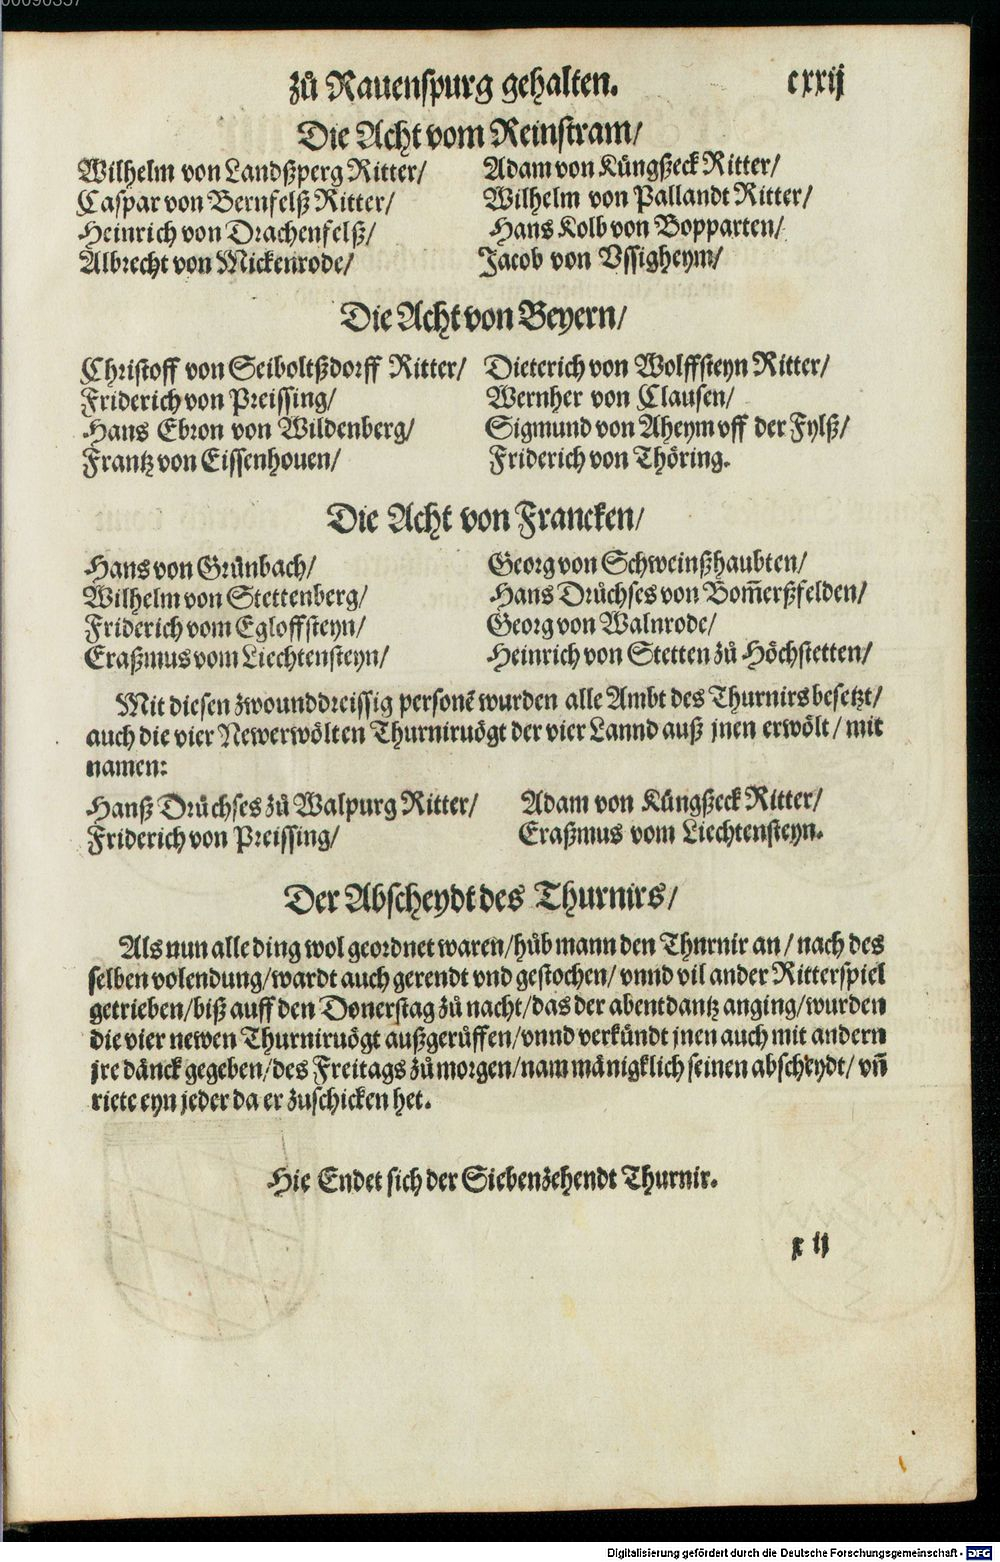 zů Rauenspurg gehalten. cxxij
Die Acht vom Reinstram/
Wilhelm von Landßperg Ritter/ Adam von Küngßeck Ritter/
Caspar von Bernfelß Ritter/ Wilhelm von Pallandt Ritter/
Heinrich von Drachenfelß/ Hans Kolb von Bopparten/
Albrecht von Mickenrode/ Jacob von Vssigheym/
Die Acht von Beyern/
Christoff von Seiboltßdorff Ritter/ Dieterich von Wolffsteyn Ritter/
Friderich von Preissing/ Wernher von Clausen/
Hans Ebron von Wildenberg/ Sigmund von Aheym vff der Fylß/
Frantz von Eissenhouen/ Friderich von Thöring.
Die Acht von Francken/
Hans von Grünbach/ Georg von Schweinßhaubten/
Wilhelm von Stettenberg/ Hans Drüchses von Bom̃erßfelden/
Friderich vom Egloffsteyn/ Georg von Walnrode/
Eraßmus vom Liechtensteyn/ Heinrich von Stetten zů Höchstetten/
Mit diesen zwounddreissig personẽ wurden alle Ambt des Thurnirs besetzt/
auch die vier Newerwölten Thurniruögt der vier Lannd auß jnen erwölt/ mit
namen:
Hanß Drüchses zů Walpurg Ritter/ Adam von Küngßeck Ritter/
Friderich von Preissing/ Eraßmus vom Liechtensteyn.
Der Abscheydt des Thurnirs/
Als nun alle ding wol geordnet waren/ hůb mann den Thurnir an/ nach des
selben volendung/ wardt auch gerendt vnd gestochen/ vnnd vil ander Ritterspiel
getrieben/ biß auff den Donerstag zů nacht/ das der abentdantz anging/ wurden
die vier newen Thurniruögt außgerůffen/ vnnd verkündt jnen auch mit andern
jre dänck gegeben/ des Freitags zů morgen/ nam mänigklich seinen abscheydt/ vñ
riete eyn jeder da er zuschicken het.
Hie Endet sich der Siebenzehendt Thurnir.
x ij
Digitalisierung gefördert durch die Deutsche Forschungsgemeinschaft - DFG